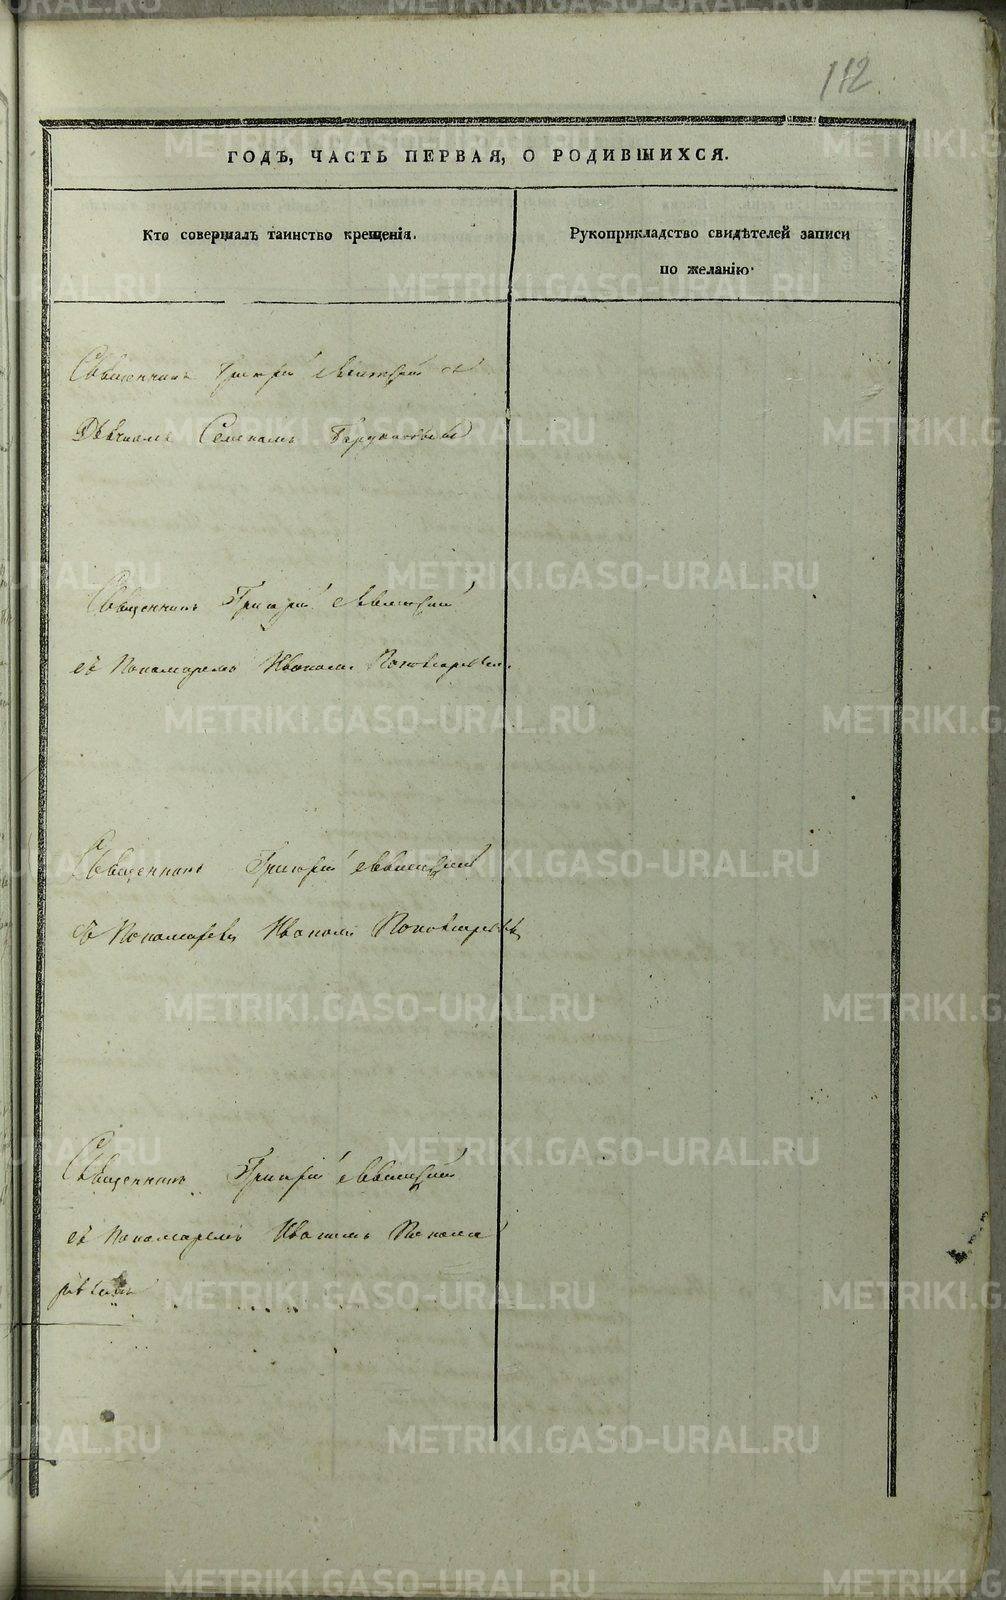 112
ГОДЪ, ЧАСТЬ ПЕРВАЯ, О РОДИВШИХСЯ.
Кто совершалъ таинство крещенія.
Рукоприкладство свидѣтелей записи
по желанію.
Священникъ Григорій съ
Семеномъ
Священникъ Григорій
съ Пономаремъ Иваномъ Пономаревымъ
Священникъ Григорій
съ Пономаремъ Иваномъ Пономаревымъ
Священникъ Григорій
съ Пономаремъ Иваномъ Понома
ревымъ
METRIKI.GASO-URAL.RU